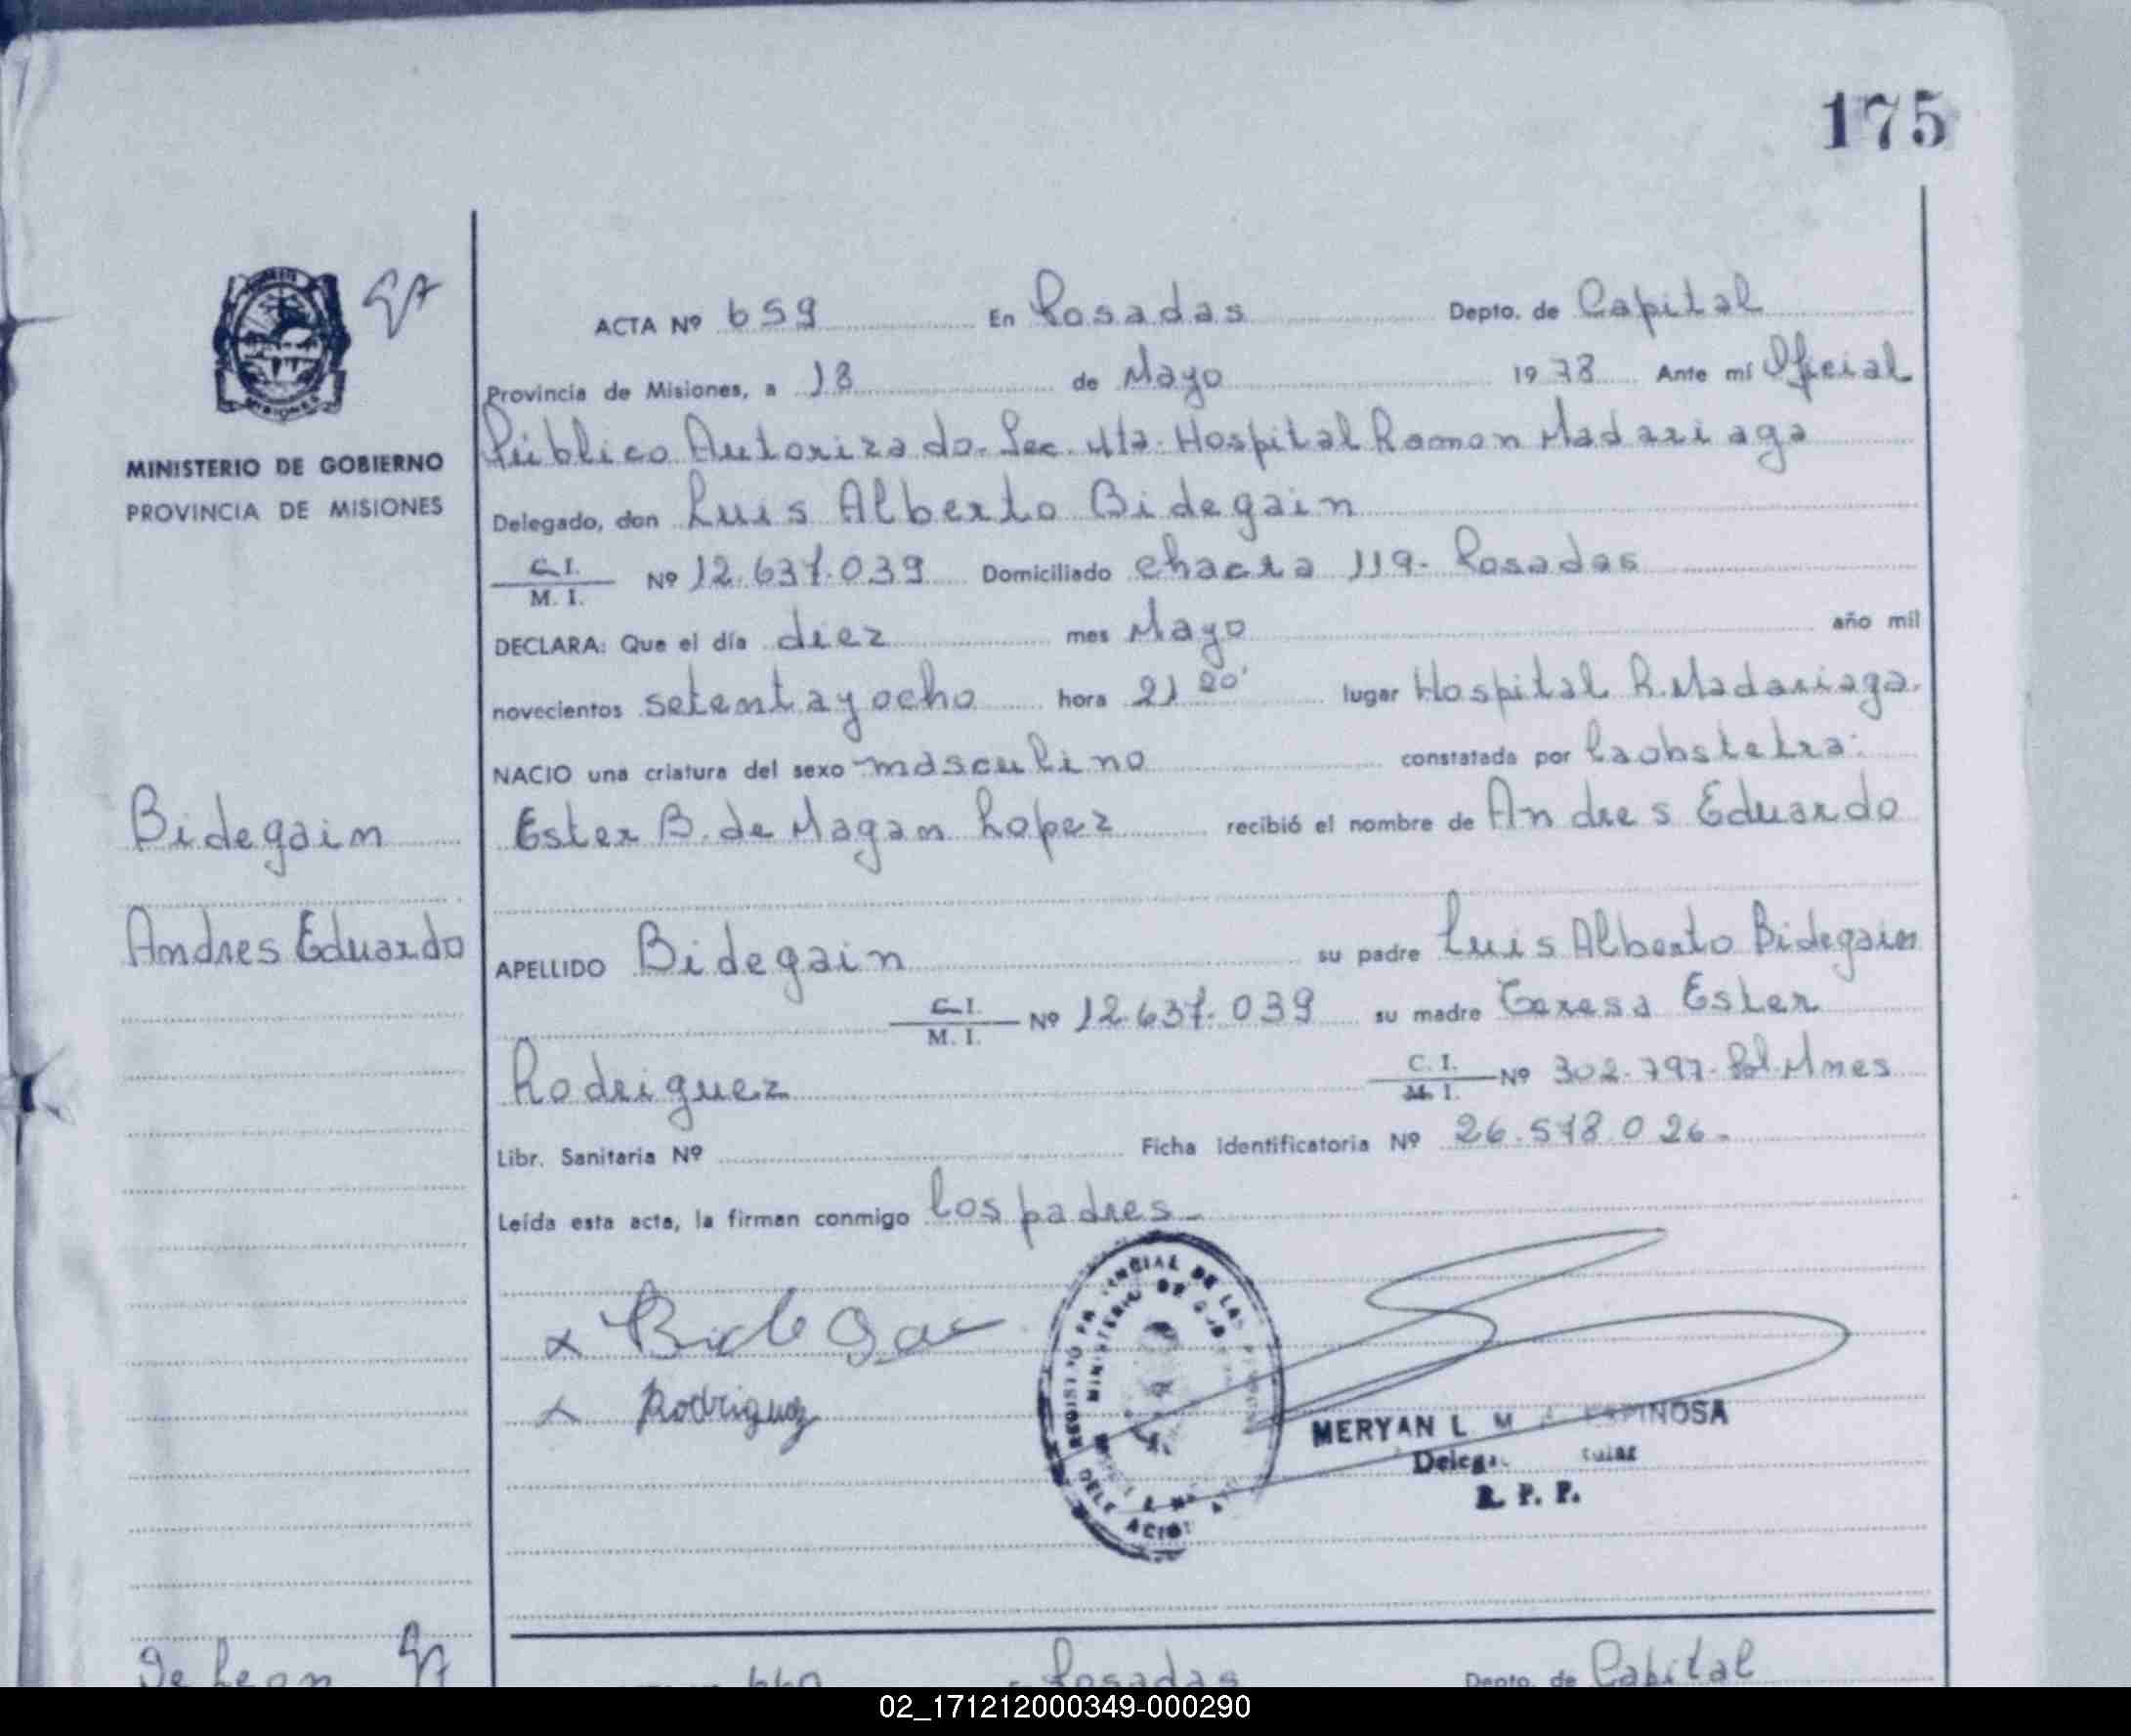 175
ACTA Nº 659 En Posadas Depto. de Capital
Provincia de Misiones, a 18 de Mayo 1978 Ante mí Oficial
Público Autorizado. Sec. 4ta. Hospital Ramon Madariaga
MINISTERIO DE GOBIERNO
PROVINCIA DE MISIONES
Delegado, don Luis Alberto Bidegain
C.I. M.I. Nº 12.637.039 Domiciliado chacra 119- Posadas
DECLARA: Que el día diez mes Mayo año mil
novecientos setenta y ocho hora 21 20' lugar Hospital R. Madariaga.
NACIO una criatura del sexo masculino constatada por la obstetra:
Bidegain
Ester B. de Magan Lopez recibió el nombre de Andres Eduardo
Andres Eduardo
APELLIDO Bidegain su padre Luis Alberto Bidegain
C.I. M.I. Nº 12.637.039 su madre Teresa Ester
Rodriguez C.I. M.I. Nº 302.797- Pol. Mnes
Libr. Sanitaria Nº Ficha identificatoria Nº 26.578.026.
Leída esta acta, la firman conmigo los padres.
x
x Rodriguez
MINISTERIO DE
MERYAN L M ESPINOSA
R. P. P.
De Leon
660 Posadas Depto. de Capital
02_171212000349-000290